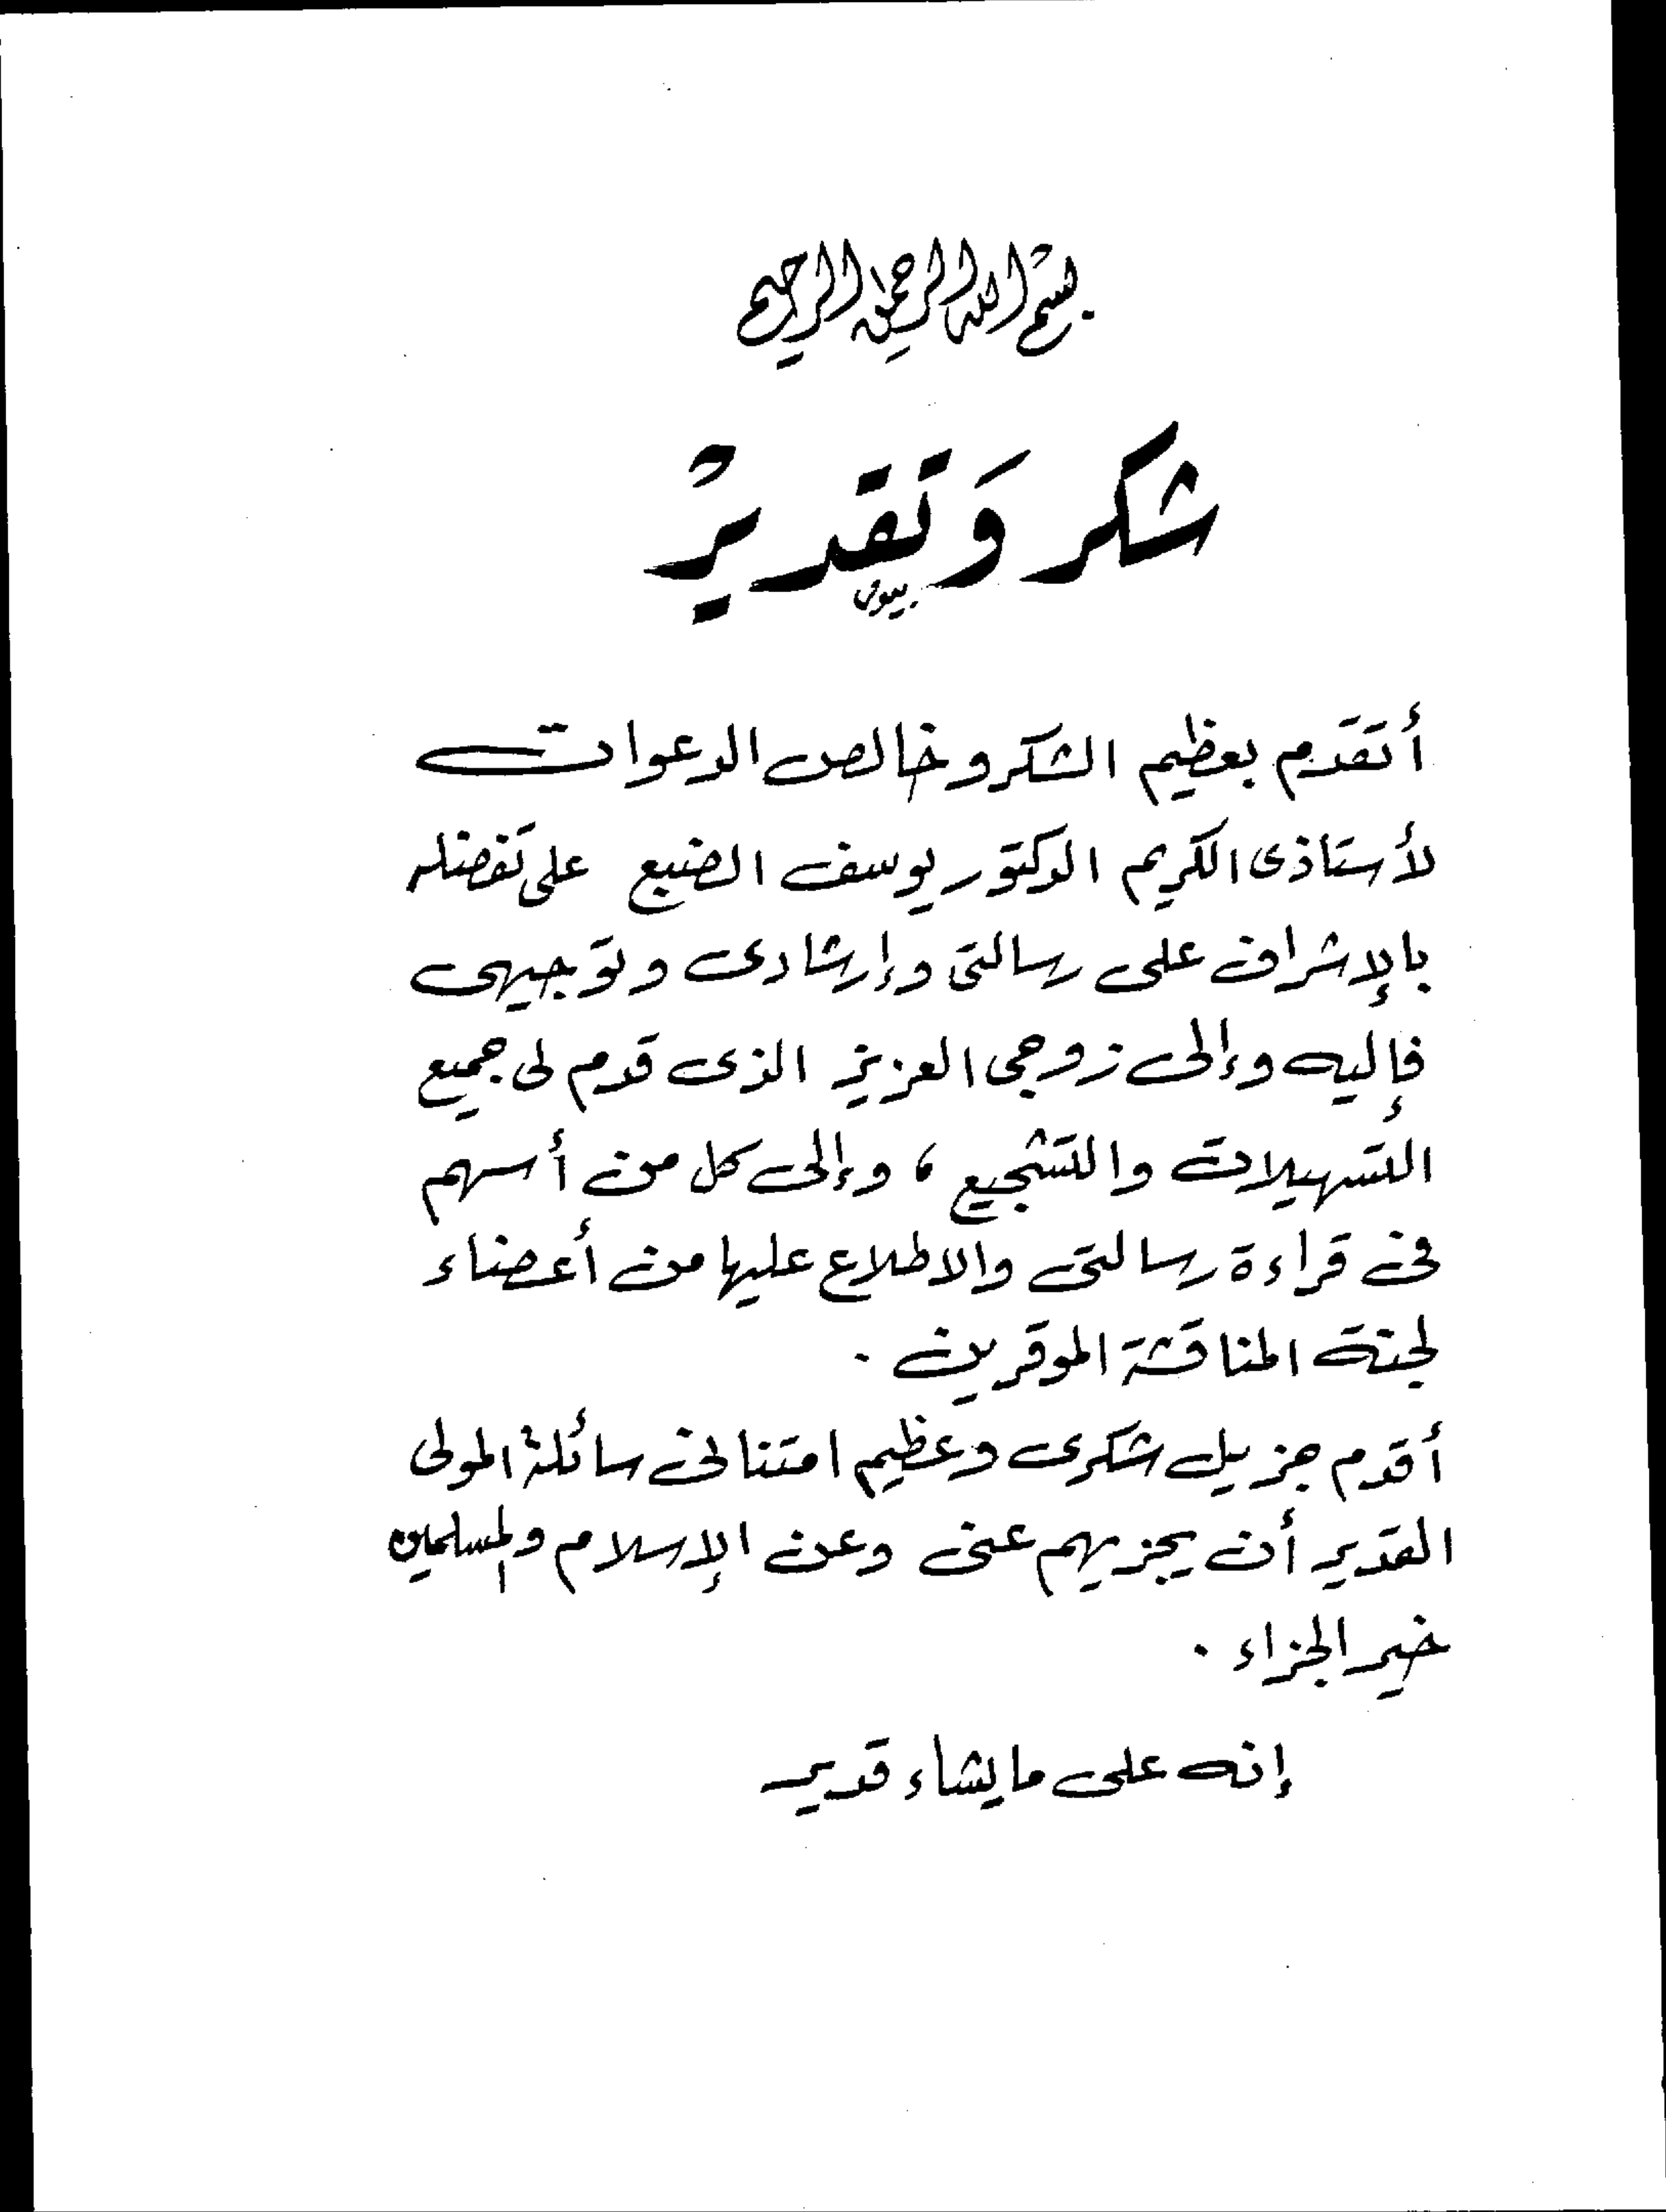 بسم الله الرحمن الرحيم
شكر وَتقديرْ
أتقدّم بعظيم الشكر وخالص الدعوات
لأستاذى الكريم الدكتور يوسف الضبع على تفضله
بالإشراف على رسالتى وإرشادى وتوجيهى
فإليه وإلى زوجى العزيز الذى قدم لى جميع
التسهيلات والتشجيع ، وإلى كل من أسهم
فى قراءة رسالتى والاطلاع عليها من أعضاء
لجنة المناقشة الموقرين .
أقدم جزيل شكرى وعظيم امتنانى سائلة المولى
القدير أن يجزيهم عنى وعن الإسلام والمسلمين
خير الجزاء .
إنه على ما يشاء قدير